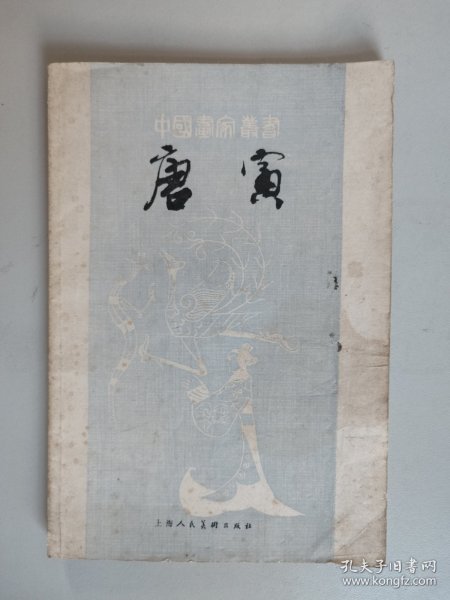 中國畫家叢書
唐寅
上海人民美術出版社
孔夫子旧书网
www.kongfz.com